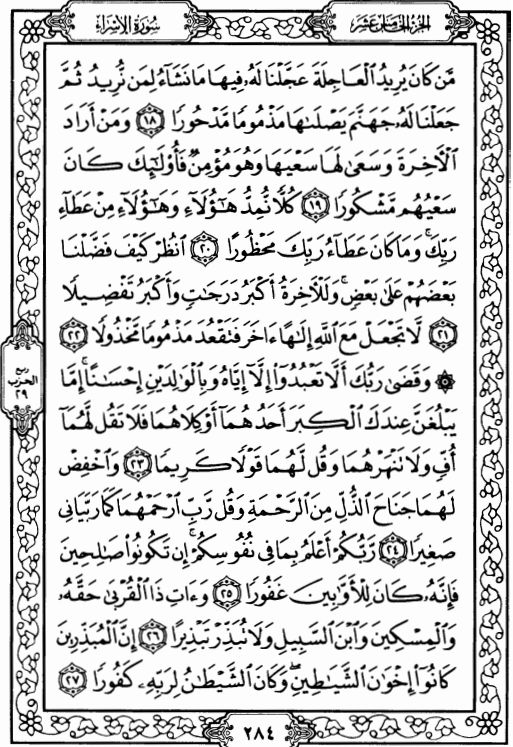 سُورَةُ الإِسْرَاءِ
الجُزْءُ الخَامِسُ عَشَر
مَّن كَانَ يُرِيدُ ٱلْعَاجِلَةَ عَجَّلْنَا لَهُۥ فِيهَا مَا نَشَآءُ لِمَن نُّرِيدُ ثُمَّ
جَعَلْنَا لَهُۥ جَهَنَّمَ يَصْلَىٰهَا مَذْمُومًا مَّدْحُورًا ١٨ وَمَنْ أَرَادَ
ٱلْأَخِرَةَ وَسَعَىٰ لَهَا سَعْيَهَا وَهُوَ مُؤْمِنٌ فَأُو۟لَٰٓئِكَ كَانَ
سَعْيُهُم مَّشْكُورًا ١٩ كُلًّا نُّمِدُّ هَٰٓؤُلَآءِ وَهَٰٓؤُلَآءِ مِنْ عَطَآءِ
رَبِّكَ ۚ وَمَا كَانَ عَطَآءُ رَبِّكَ مَحْظُورًا ٢٠ ٱنظُرْ كَيْفَ فَضَّلْنَا
بَعْضَهُمْ عَلَىٰ بَعْضٍ ۚ وَلَلْأَخِرَةُ أَكْبَرُ دَرَجَٰتٍ وَأَكْبَرُ تَفْضِيلًا
٢١ لَّا تَجْعَلْ مَعَ ٱللَّهِ إِلَٰهًا ءَاخَرَ فَتَقْعُدَ مَذْمُومًا مَّخْذُولًا ٢٢
۞ وَقَضَىٰ رَبُّكَ أَلَّا تَعْبُدُوٓا۟ إِلَّآ إِيَّاهُ وَبِٱلْوَٰلِدَيْنِ إِحْسَٰنًا ۚ إِمَّا
يَبْلُغَنَّ عِندَكَ ٱلْكِبَرَ أَحَدُهُمَآ أَوْ كِلَاهُمَا فَلَا تَقُل لَّهُمَآ
أُفٍّ وَلَا تَنْهَرْهُمَا وَقُل لَّهُمَا قَوْلًا كَرِيمًا ٢٣ وَٱخْفِضْ
لَهُمَا جَنَاحَ ٱلذُّلِّ مِنَ ٱلرَّحْمَةِ وَقُل رَّبِّ ٱرْحَمْهُمَا كَمَا رَبَّيَانِى
صَغِيرًا ٢٤ رَّبُّكُمْ أَعْلَمُ بِمَا فِى نُفُوسِكُمْ ۚ إِن تَكُونُوا۟ صَٰلِحِينَ
فَإِنَّهُۥ كَانَ لِلْأَوَّٰبِينَ غَفُورًا ٢٥ وَءَاتِ ذَا ٱلْقُرْبَىٰ حَقَّهُۥ
وَٱلْمِسْكِينَ وَٱبْنَ ٱلسَّبِيلِ وَلَا تُبَذِّرْ تَبْذِيرًا ٢٦ إِنَّ ٱلْمُبَذِّرِينَ
كَانُوٓا۟ إِخْوَٰنَ ٱلشَّيَٰطِينِ ۖ وَكَانَ ٱلشَّيْطَٰنُ لِرَبِّهِۦ كَفُورًا ٢٧
ربع
الحزب
٢٩
٢٨٤